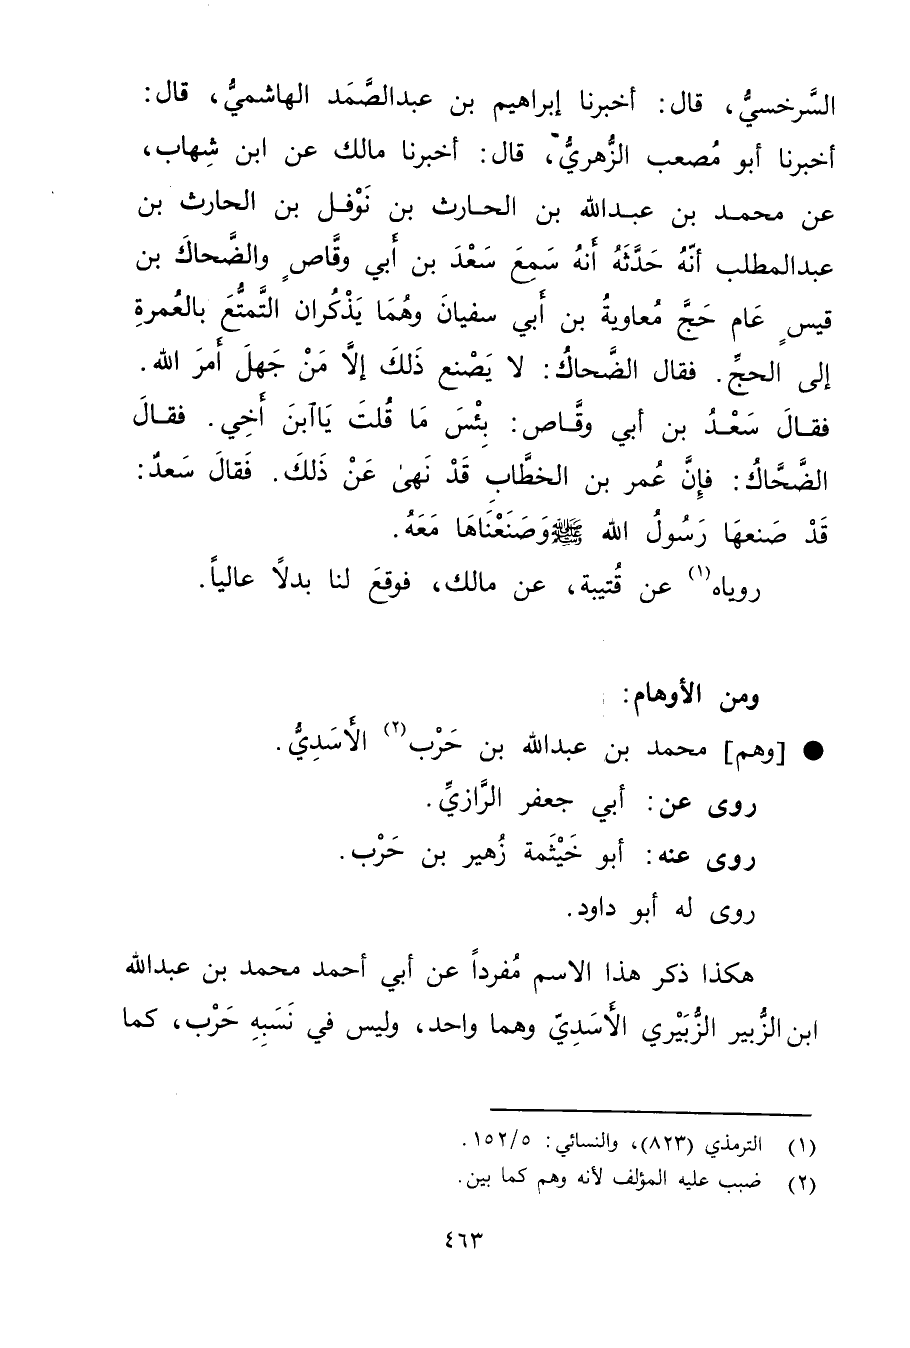 السَّرخسيُّ، قال: أخبرنا إبراهيم بن عبدالصَّمَد الهاشميُّ، قال:
أخبرنا أبو مُصعب الزُّهريُّ، قال: أخبرنا مالك عن ابن شِهاب،
عن محمـد بن عبـدالله بن الحـارث بن نَوْفـل بن الحارث بن
عبدالمطلب أنّهُ حَدَّثَهُ أَنهُ سَمِعَ سَعْدَ بن أَبي وقَّاصٍ والضَّحاكَ بن
قيسٍ عَام حَجَّ مُعاويةُ بن أَبي سفيانَ وهُمَا يَذْكُران التَّمتُّعَ بالعُمرةِ
إلى الحجِّ. فقال الضَّحاكُ: لا يَصْنع ذَلكَ إلَّا مَنْ جَهلَ أَمرَ الله.
فقـالَ سَعْـدُ بن أبي وقَّـاص: بِئْسَ مَا قُلتَ يَاآبنَ أَخِي. فقـالَ
الضَّحَّاكُ: فإِنَّ عُمر بن الخطَّابِ قَدْ نَهىٰ عَنْ ذَلكَ. فَقالَ سَعدٌ:
قَدْ صَنعهَا رَسُولُ الله ﷺ وَصَنَعْنَاهَا مَعَهُ.
روياه(١) عن قُتيبة، عن مالك، فوقعَ لنا بدلاً عالياً.
ومن الأوهام:
● [وهم] محمد بن عبدالله بن حَرْب(٢) الأَسَدِيُّ.
روى عن: أبي جعفر الرَّازيِّ.
روى عنه: أبو خَيْثَمة زُهير بن حَرْب.
روى له أبو داود.
هكذا ذكر هذا الاسم مُفرداً عن أبي أحمد محمد بن عبدالله
ابن الزُّبير الزُّبَيْري الأَسَدِيّ وهما واحد، وليس في نَسَبِهِ حَرْب، كما
(١) الترمذي (٨٢٣)، والنسائي: ١٥٢/٥.
(٢) ضبب عليه المؤلف لأنه وهم كما بين.
٤٦٣